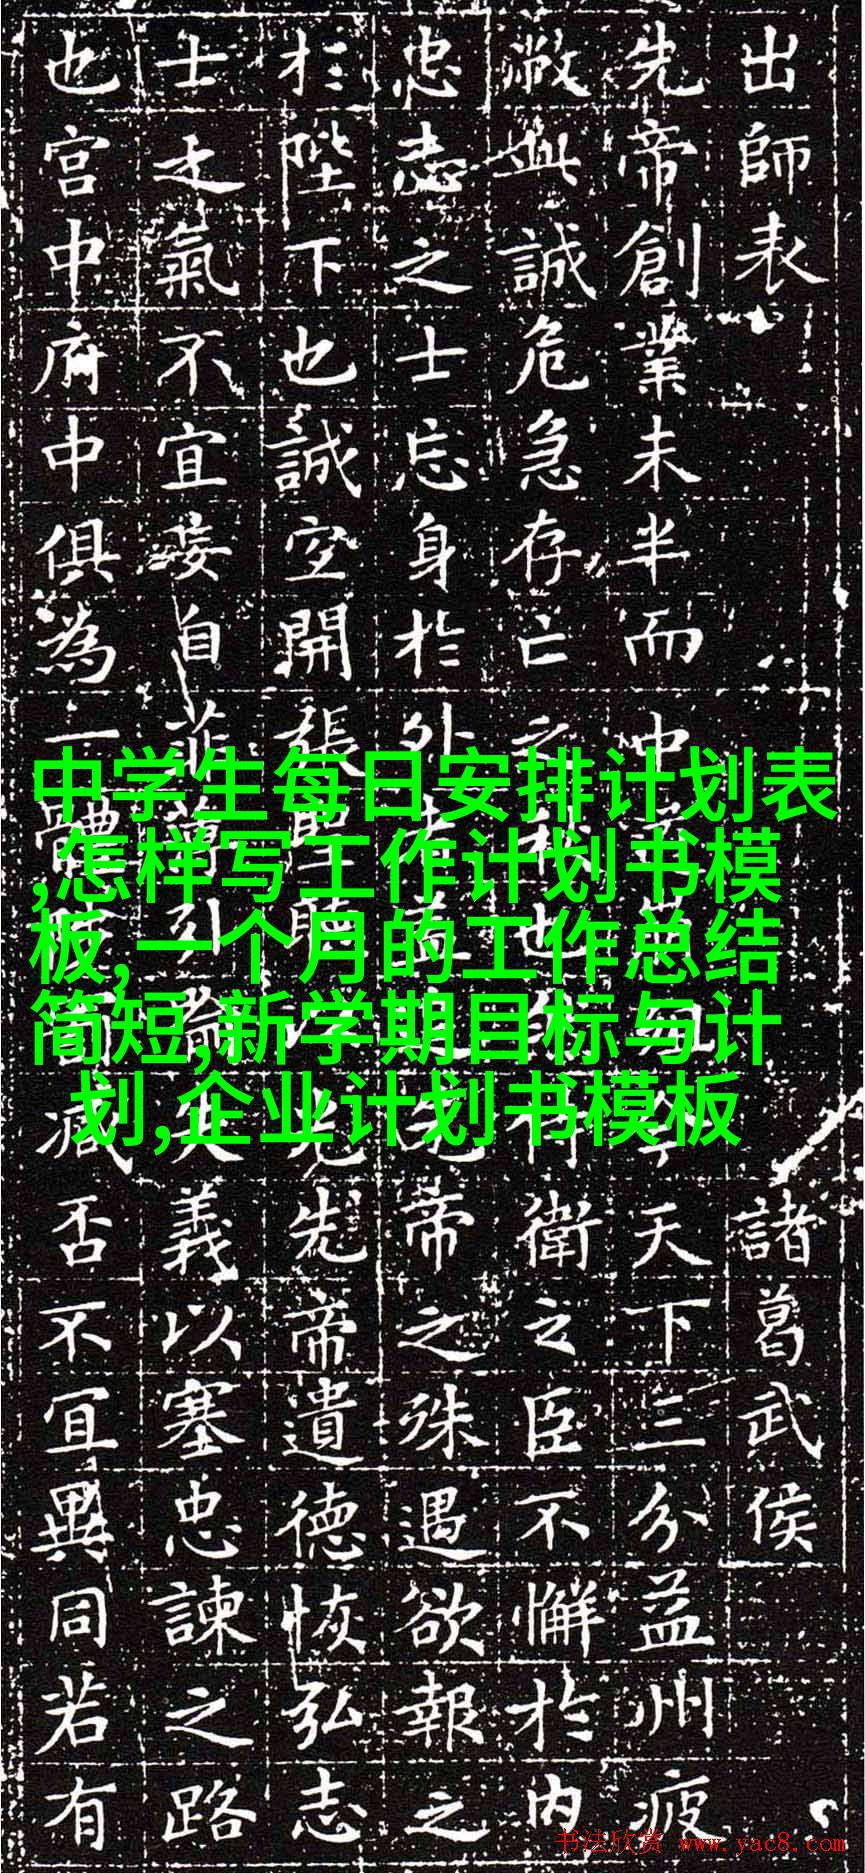 出師表 諸葛武侯
先帝創業未半而中 天下三分益州疲
敝與誠危急存亡之 也 衛之臣不懈於内
忠志之士忘身於外 先帝之殊遇欲報之
於陛下也誠空開張 光先帝遺德恢弘志
士之氣不宜妄自菲 引 失義以塞忠諫之路
也宮中府中俱為一體 臧否不宜異同若有
中学生每日安排计划表
,怎样写工作计划书模
板,一个月的工作总结
简短,新学期目标与计
划,企业计划书模板
书法欣赏 www.yac8.com